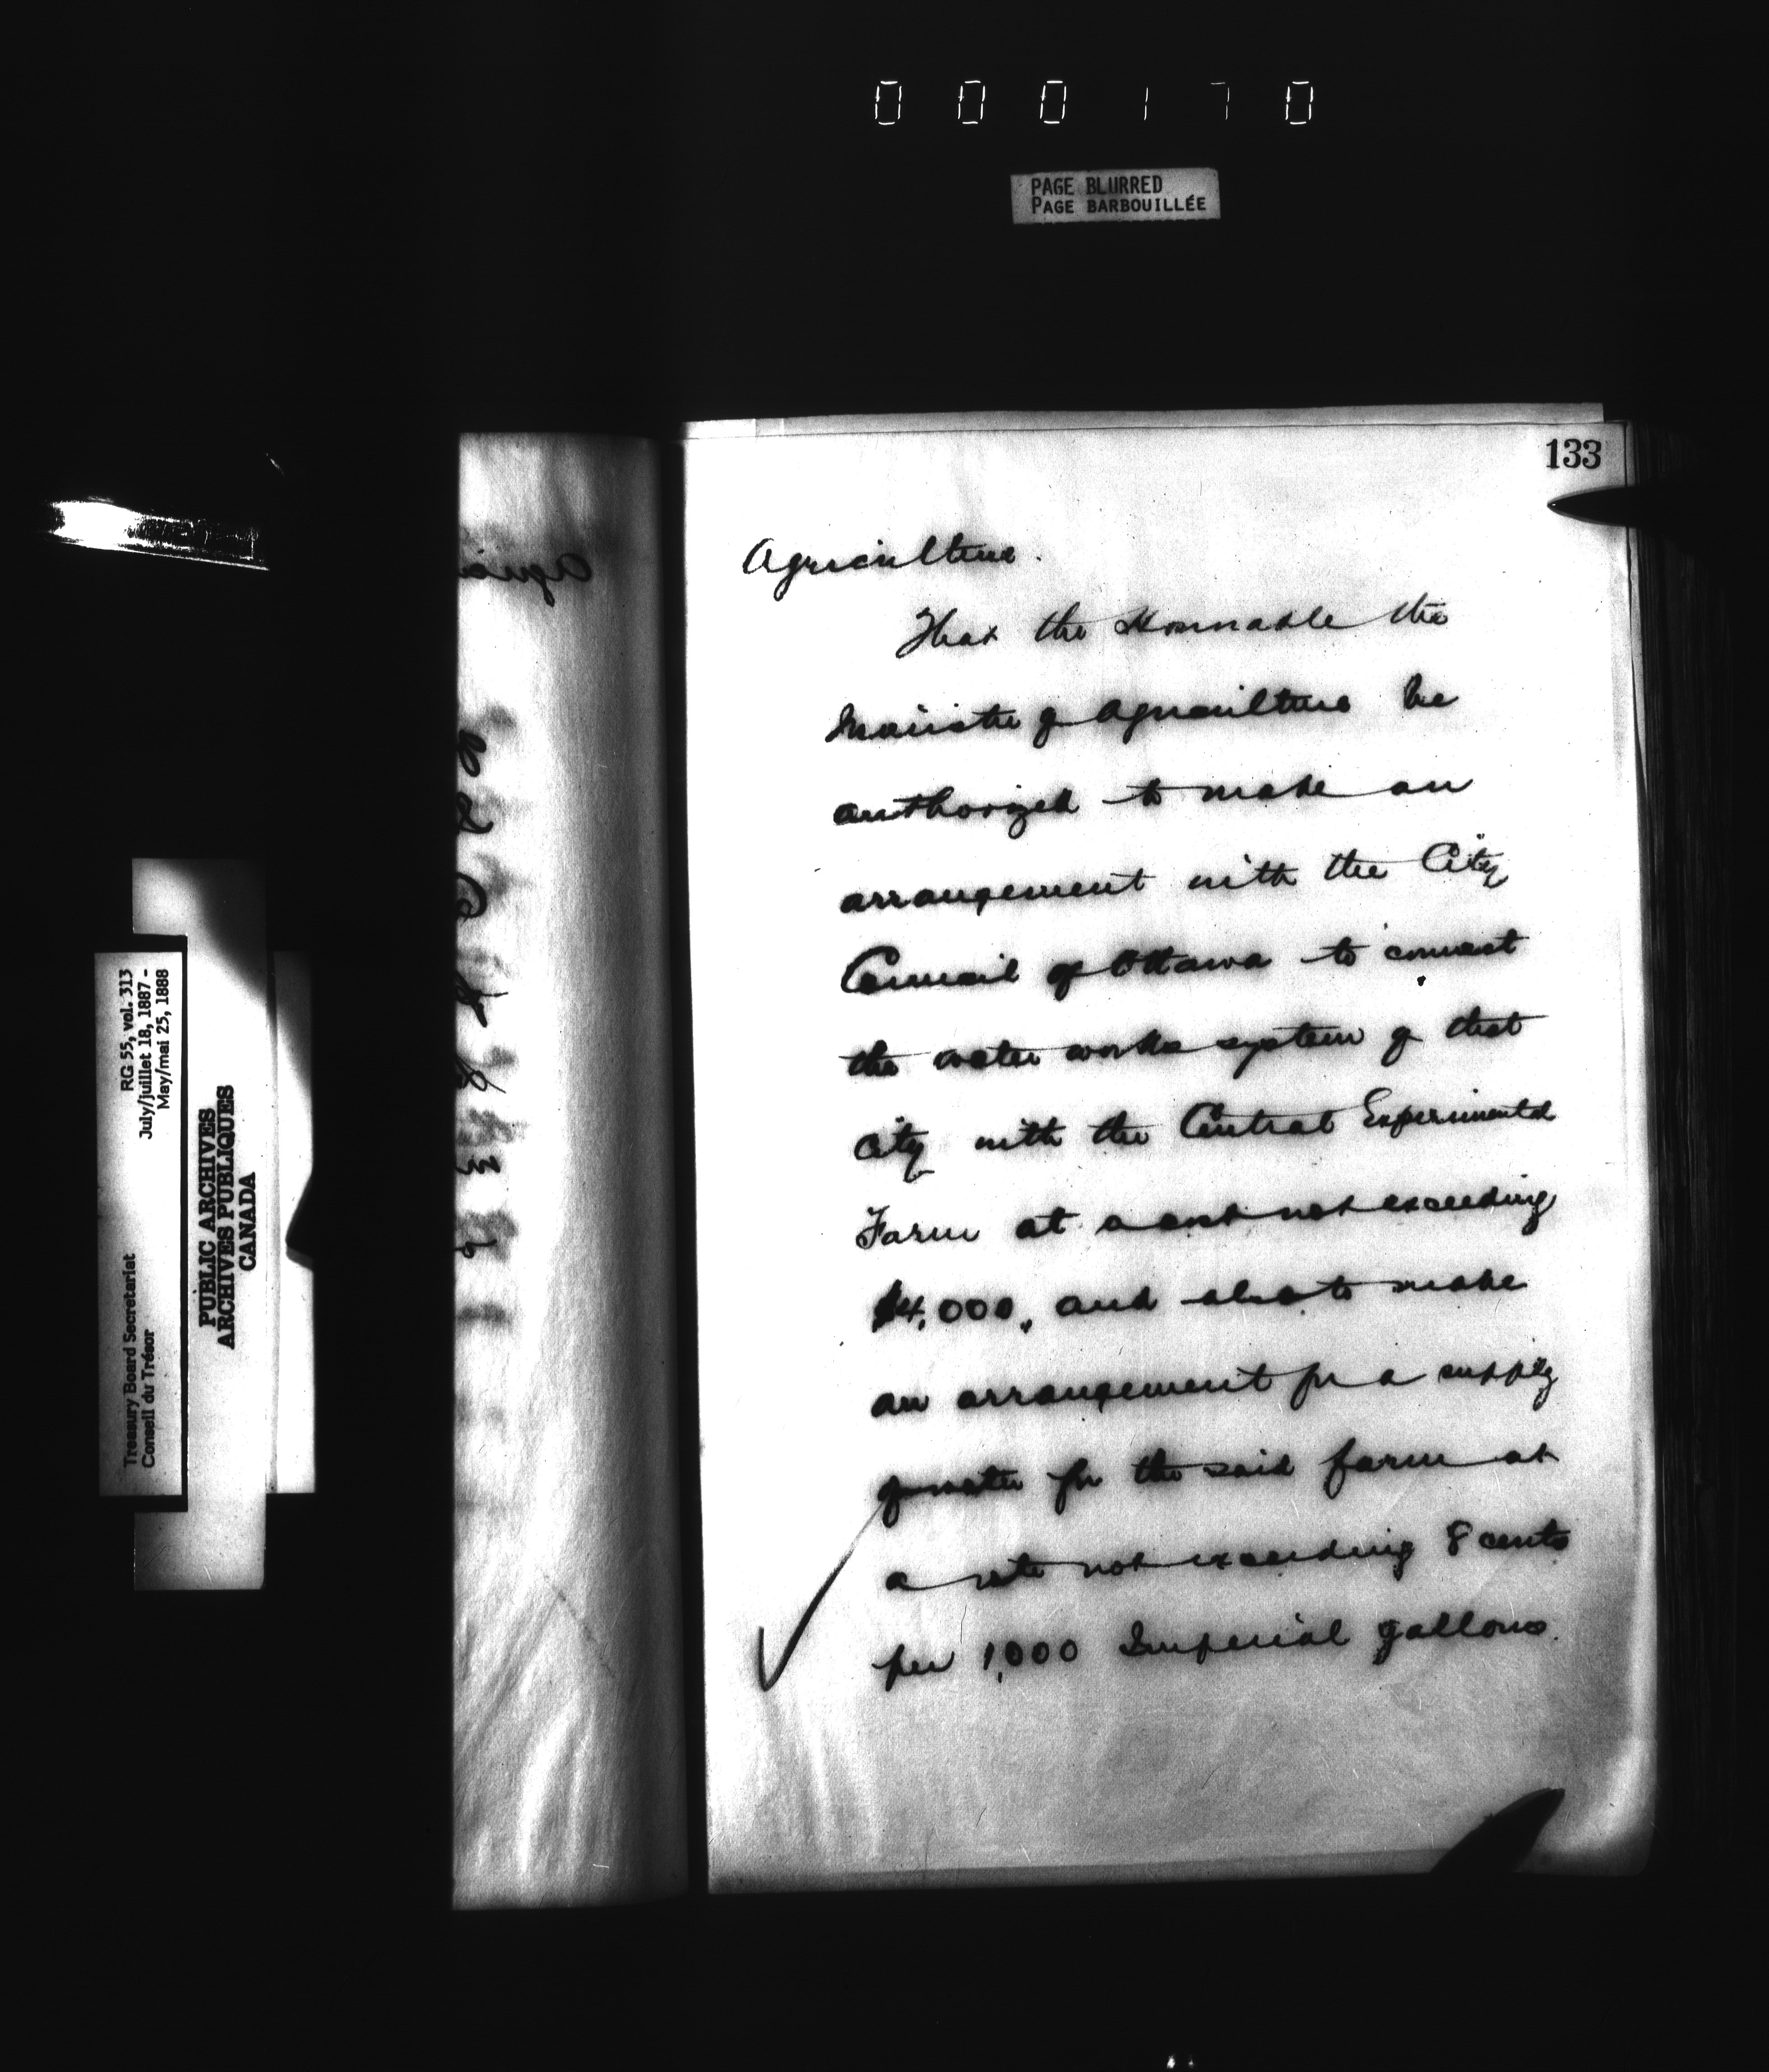 000170
PAGE BLURRED
PAGE BARBOUILLÉE
133
Agriculture.
That the Honorable the
Minister of Agriculture be
authorized to make an
arrangement with the City
Council of Ottawa to connect
the water works system of that
City with the Central Experimental
Farm at a cost not exceeding
$4,000, and also to make
an arrangement for a supply
of water for the said farm at
a rate not exceeding 8 cents
per 1,000 Imperial gallons.
RG 55, vol. 313
July/juillet 18, 1887 -
May/mai 25, 1888
Treasury Board Secretariat
Conseil du Trésor
PUBLIC ARCHIVES
ARCHIVES PUBLIQUES
CANADA